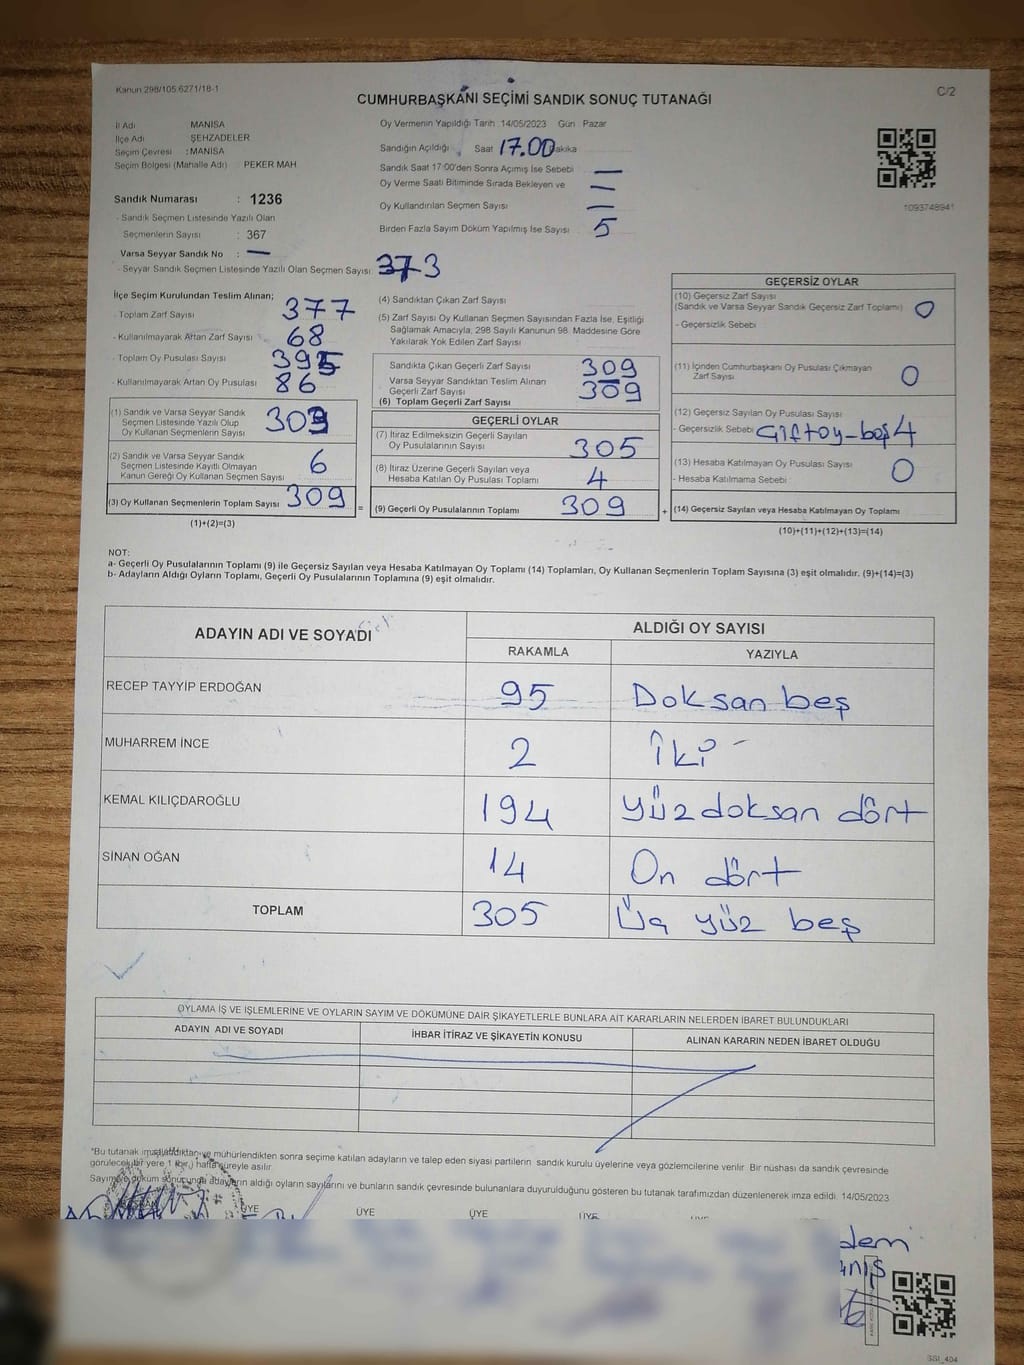 Kanun 298/105.6271/18-1
C/2
CUMHURBAŞKANI SEÇİMİ SANDIK SONUÇ TUTANAĞI
İl Adı MANİSA
İlçe Adı ŞEHZADELER
Seçim Çevresi : MANİSA
Seçim Bölgesi (Mahalle Adı) PEKER MAH
Sandık Numarası : 1236
- Sandık Seçmen Listesinde Yazılı Olan
Seçmenlerin Sayısı : 367
Varsa Seyyar Sandık No : —
- Seyyar Sandık Seçmen Listesinde Yazılı Olan Seçmen Sayısı: 373
Oy Vermenin Yapıldığı Tarih :14/05/2023 Gün Pazar
Sandığın Açıldığı Saat 17.00 Dakika
Sandık Saat 17:00'den Sonra Açımış İse Sebebi —
Oy Verme Saati Bitiminde Sırada Bekleyen ve —
Oy Kullandırılan Seçmen Sayısı —
Birden Fazla Sayım Döküm Yapılmış İse Sayısı 5
1093748941
İlçe Seçim Kurulundan Teslim Alınan;
- Toplam Zarf Sayısı 377
- Kullanılmayarak Artan Zarf Sayısı 68
- Toplam Oy Pusulası Sayısı 395
- Kullanılmayarak Artan Oy Pusulası 86
(1) Sandık ve Varsa Seyyar Sandık
Seçmen Listesinde Yazılı Olup
Oy Kullanan Seçmenlerin Sayısı 303
(2) Sandık ve Varsa Seyyar Sandık
Seçmen Listesinde Kayıtlı Olmayan
Kanun Gereği Oy Kullanan Seçmen Sayısı 6
(3) Oy Kullanan Seçmenlerin Toplam Sayısı 309 =
(1)+(2)=(3)
(4) Sandıktan Çıkan Zarf Sayısı
(5) Zarf Sayısı Oy Kullanan Seçmen Sayısından Fazla İse, Eşitliği
Sağlamak Amacıyla, 298 Sayılı Kanunun 98. Maddesine Göre
Yakılarak Yok Edilen Zarf Sayısı
Sandıkta Çıkan Geçerli Zarf Sayısı 309
Varsa Seyyar Sandıktan Teslim Alınan
Geçerli Zarf Sayısı
(6) Toplam Geçerli Zarf Sayısı 309
GEÇERLİ OYLAR
(7) İtiraz Edilmeksizin Geçerli Sayılan
Oy Pusulalarının Sayısı 305
(8) İtiraz Üzerine Geçerli Sayılan veya
Hesaba Katılan Oy Pusulası Toplamı 4
(9) Geçerli Oy Pusulalarının Toplamı 309 +
GEÇERSİZ OYLAR
(10) Geçersiz Zarf Sayısı
(Sandık ve Varsa Seyyar Sandık Geçersiz Zarf Toplamı) 0
- Geçersizlik Sebebi
(11) İçinden Cumhurbaşkanı Oy Pusulası Çıkmayan
Zarf Sayısı 0
(12) Geçersiz Sayılan Oy Pusulası Sayısı
- Geçersizlik Sebebi Çift oy - beş 4
(13) Hesaba Katılmayan Oy Pusulası Sayısı 0
- Hesaba Katılmama Sebebi :
(14) Geçersiz Sayılan veya Hesaba Katılmayan Oy Toplamı
(10)+(11)+(12)+(13)=(14)
NOT:
a- Geçerli Oy Pusulalarının Toplamı (9) ile Geçersiz Sayılan veya Hesaba Katılmayan Oy Toplamı (14) Toplamları, Oy Kullanan Seçmenlerin Toplam Sayısına (3) eşit olmalıdır. (9)+(14)=(3)
b- Adayların Aldığı Oyların Toplamı, Geçerli Oy Pusulalarının Toplamına (9) eşit olmalıdır.
ADAYIN ADI VE SOYADI
ALDIĞI OY SAYISI
RAKAMLA YAZIYLA
RECEP TAYYİP ERDOĞAN 95 Doksan beş
MUHARREM İNCE 2 İki
KEMAL KILIÇDAROĞLU 194 Yüz doksan dört
SİNAN OĞAN 14 On dört
TOPLAM 305 Üç yüz beş
OYLAMA İŞ VE İŞLEMLERİNE VE OYLARIN SAYIM VE DÖKÜMÜNE DAİR ŞİKAYETLERLE BUNLARA AİT KARARLARIN NELERDEN İBARET BULUNDUKLARI
ADAYIN ADI VE SOYADI İHBAR İTİRAZ VE ŞİKAYETİN KONUSU ALINAN KARARIN NEDEN İBARET OLDUĞU
*Bu tutanak imzalandıktan ve mühürlendikten sonra seçime katılan adayların ve talep eden siyasi partilerin sandık kurulu üyelerine veya gözlemcilerine verilir. Bir nüshası da sandık çevresinde
görülecek bir yere 1 (bir) hafta süreyle asılır.
Sayım ve döküm sonucunda adayların aldığı oyların sayılarını ve bunların sandık çevresinde bulunanlara duyurulduğunu gösteren bu tutanak tarafımızdan düzenlenerek imza edildi. 14/05/2023
ÜYE ÜYE ÜYE ÜYE
dem